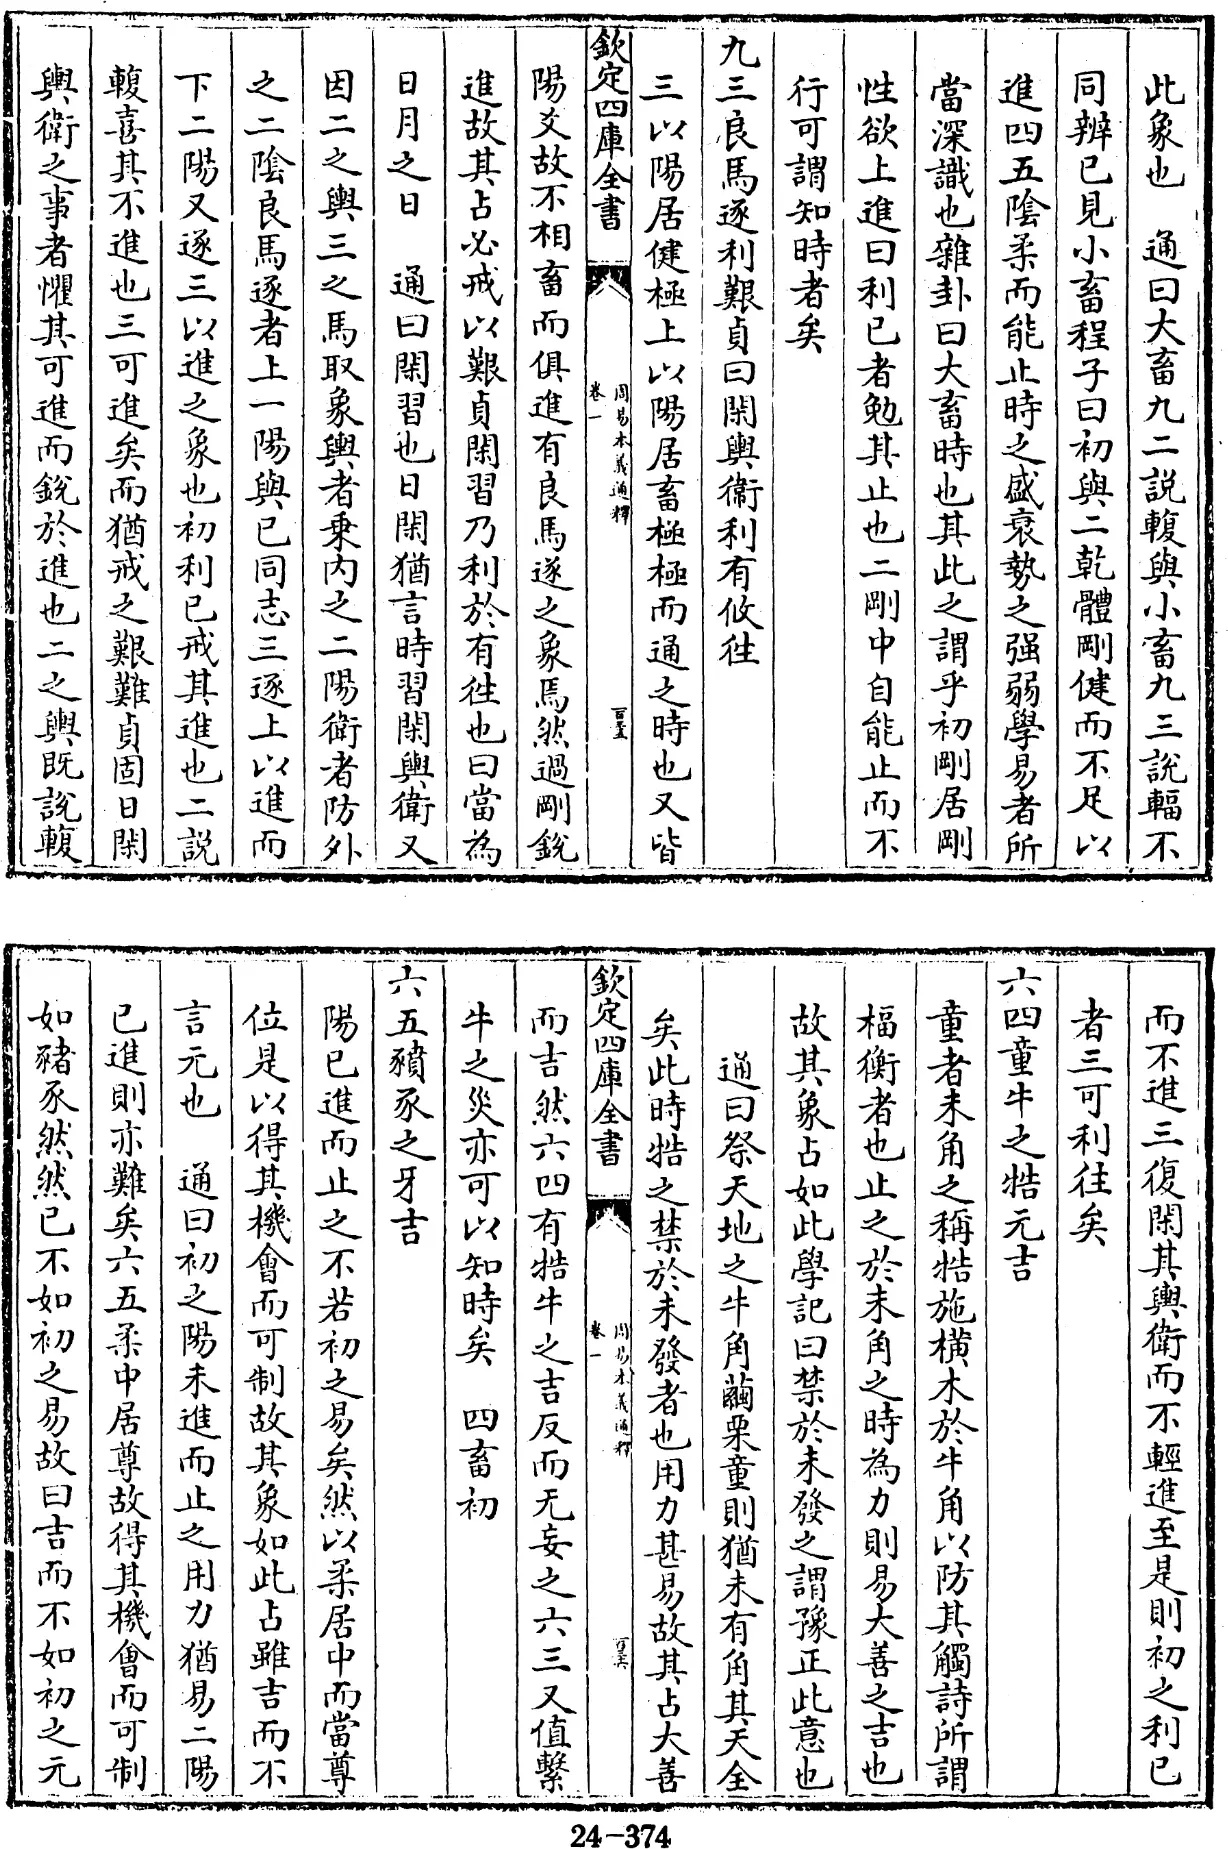 此象也　通曰大畜九二説輹與小畜九三説輻不
同辨已見小畜程子曰初與二乾體剛健而不足以
進四五陰柔而能止時之盛衰勢之强弱學易者所
當深識也雜卦曰大畜時也其此之謂乎初剛居剛
性欲上進曰利已者勉其止也二剛中自能止而不
行可謂知時者矣
九三良馬逐利艱貞曰閑輿衛利有攸往
三以陽居健極上以陽居畜極極而通之時也又皆
欽定四庫全書
周易本義通釋
卷一
陽爻故不相畜而俱進有良馬逐之象焉然過剛銳
進故其占必戒以艱貞閑習乃利於有往也曰當為
日月之日　通曰閑習也日閑猶言時習閑輿衛又
因二之輿三之馬取象輿者乗内之二陽衛者防外
之二陰良馬逐者上一陽與已同志三逐上以進而
下二陽又逐三以進之象也初利已戒其進也二説
輹喜其不進也三可進矣而猶戒之艱難貞固日閑
輿衛之事者懼其可進而銳於進也二之輿既說輹
而不進三復閑其輿衛而不輕進至是則初之利已
者三可利往矣
六四童牛之牿元吉
童者未角之稱牿施横木於牛角以防其觸詩所謂
楅衡者也止之於未角之時為力則易大善之吉也
故其象占如此學記曰禁於未發之謂豫正此意也
通曰祭天地之牛角繭栗童則猶未有角其天全
矣此時牿之禁於未發者也用力甚易故其占大善
欽定四庫全書
周易本義通釋
卷一
而吉然六四有牿牛之吉反而无妄之六三又值繫
牛之災亦可以知時矣　四畜初
六五豶豕之牙吉
陽已進而止之不若初之易矣然以柔居中而當尊
位是以得其機會而可制故其象如此占雖吉而不
言元也　通曰初之陽未進而止之用力猶易二陽
已進則亦難矣六五柔中居尊故得其機會而可制
如豬豕然然已不如初之易故曰吉而不如初之元
24-374